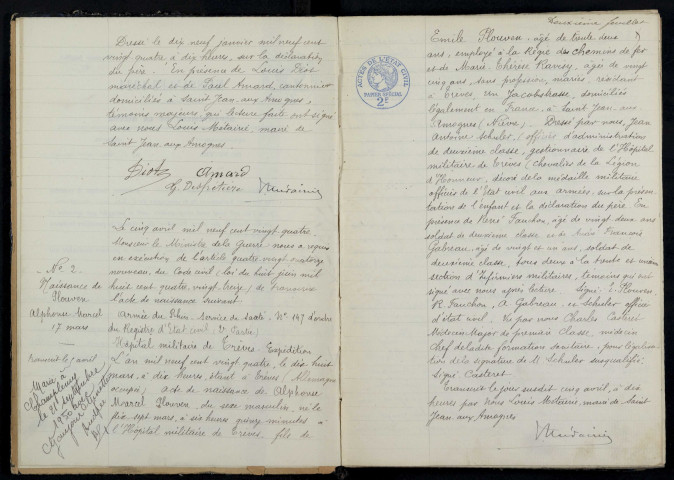 Dressé le dix neuf janvier mil neuf cent
vingt quatre à dix heures, sur la déclaration
du père. En présence de Louis Diot
maréchal et de Paul Amard, cantonnier
domiciliés à Saint Jean aux Amognes,
témoins majeurs, qui lecture faite ont signé
avec nous Louis maire de
Saint Jean aux Amognes
Diot Amard
Le cinq avril mil neuf cent vingt quatre
Monsieur le Ministre de la Guerre nous a requis
en exécution de l'article quatre vingt quatorze
nouveau du Code civil (loi du huit juin mil
huit cent quatre vingt treize) de transcrire
l'acte de naissance suivant
Armée du Rhin - Service de santé - N° 147 d'ordre
du Registre d'Etat civil (2e Partie)
Hôpital militaire de Trèves Expédition
L'an mil neuf cent vingt quatre, le dix huit
mars, à dix heures, étant à Trèves (Allemagne
occupée) acte de naissance de Alphonse
Marcel Plouven, du sexe masculin, né le
dix sept mars, à six heures quinze minutes à
l'Hôpital militaire de Trèves, fils de
N° 2
Naissance de
Plouven
Alphonse Marcel
17 mars
Marié à
le 21 septembre
1950
Deuxième feuillet
ACTES DE L'ÉTAT CIVIL
PAPIER SPÉCIAL
2e
Emile Plouven, âgé de trente deux
ans, employé à la Régie des chemins de fer
et de Marie Thérèse Ravisy, âgée de vingt
cinq ans, sans profession, mariés, résidant
à Trèves, Jacobstrasse, domiciliés
légalement en France, à Saint Jean aux
Amognes (Nièvre). Dressé par nous, Jean
Antoine Schuler, (officier d'administration
de deuxième classe, gestionnaire de l'Hôpital
militaire de Trèves (Chevalier de la Légion
d'Honneur, décoré de la médaille militaire
officier de l'Etat civil aux armées, sur la présen
tation de l'enfant et la déclaration du père. En
présence de René Fauchon, âgé de vingt deux ans
soldat de deuxième classe et de François
Gabreau, âgé de vingt et un ans, soldat de
deuxième classe, tous deux à la trente et unième
section d'Infirmiers militaires, témoins qui ont
signé avec nous après lecture. Signé : E. Plouven
R. Fauchon, A Gabreau et Schuler officier
d'état civil. Vu par nous Charles Casteret
Médecin Major de première classe, médecin
chef de ladite formation sanitaire, pour légalisa
tion de la signature de M. Schuler susqualifié,
signé Casteret.
Transcrit le jour susdit cinq avril, à dix
heures par nous Louis maire de Saint
Jean aux Amognes